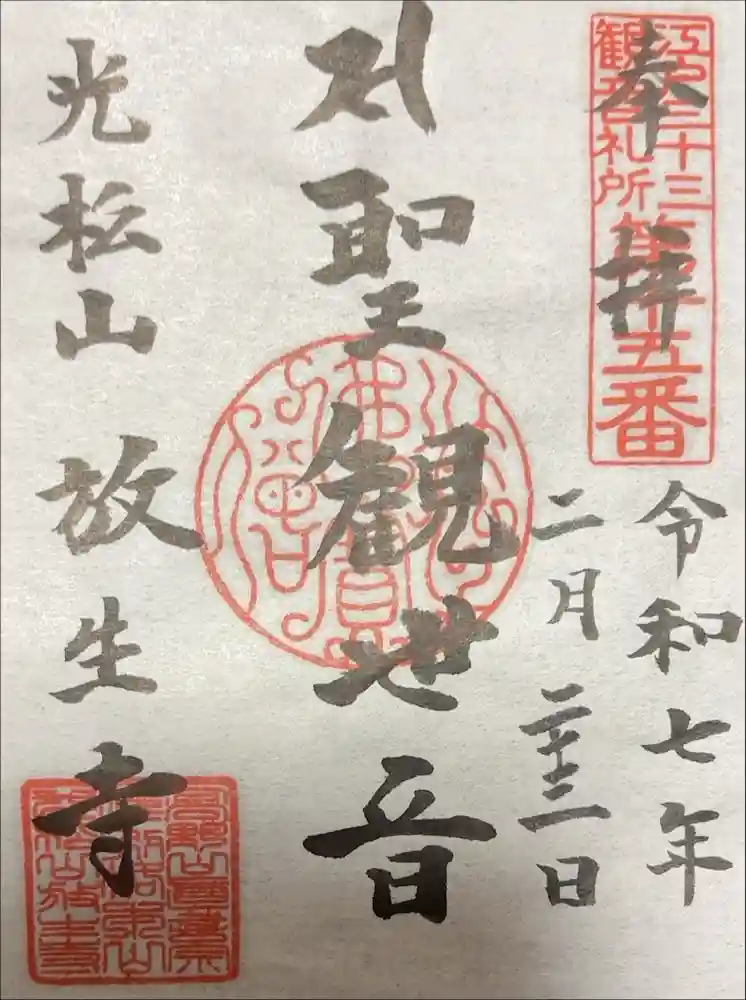 奉拝
江戸三十三
観音札所
第十五番
令和七年
二月二十三日
聖観世音
光松山 放生寺